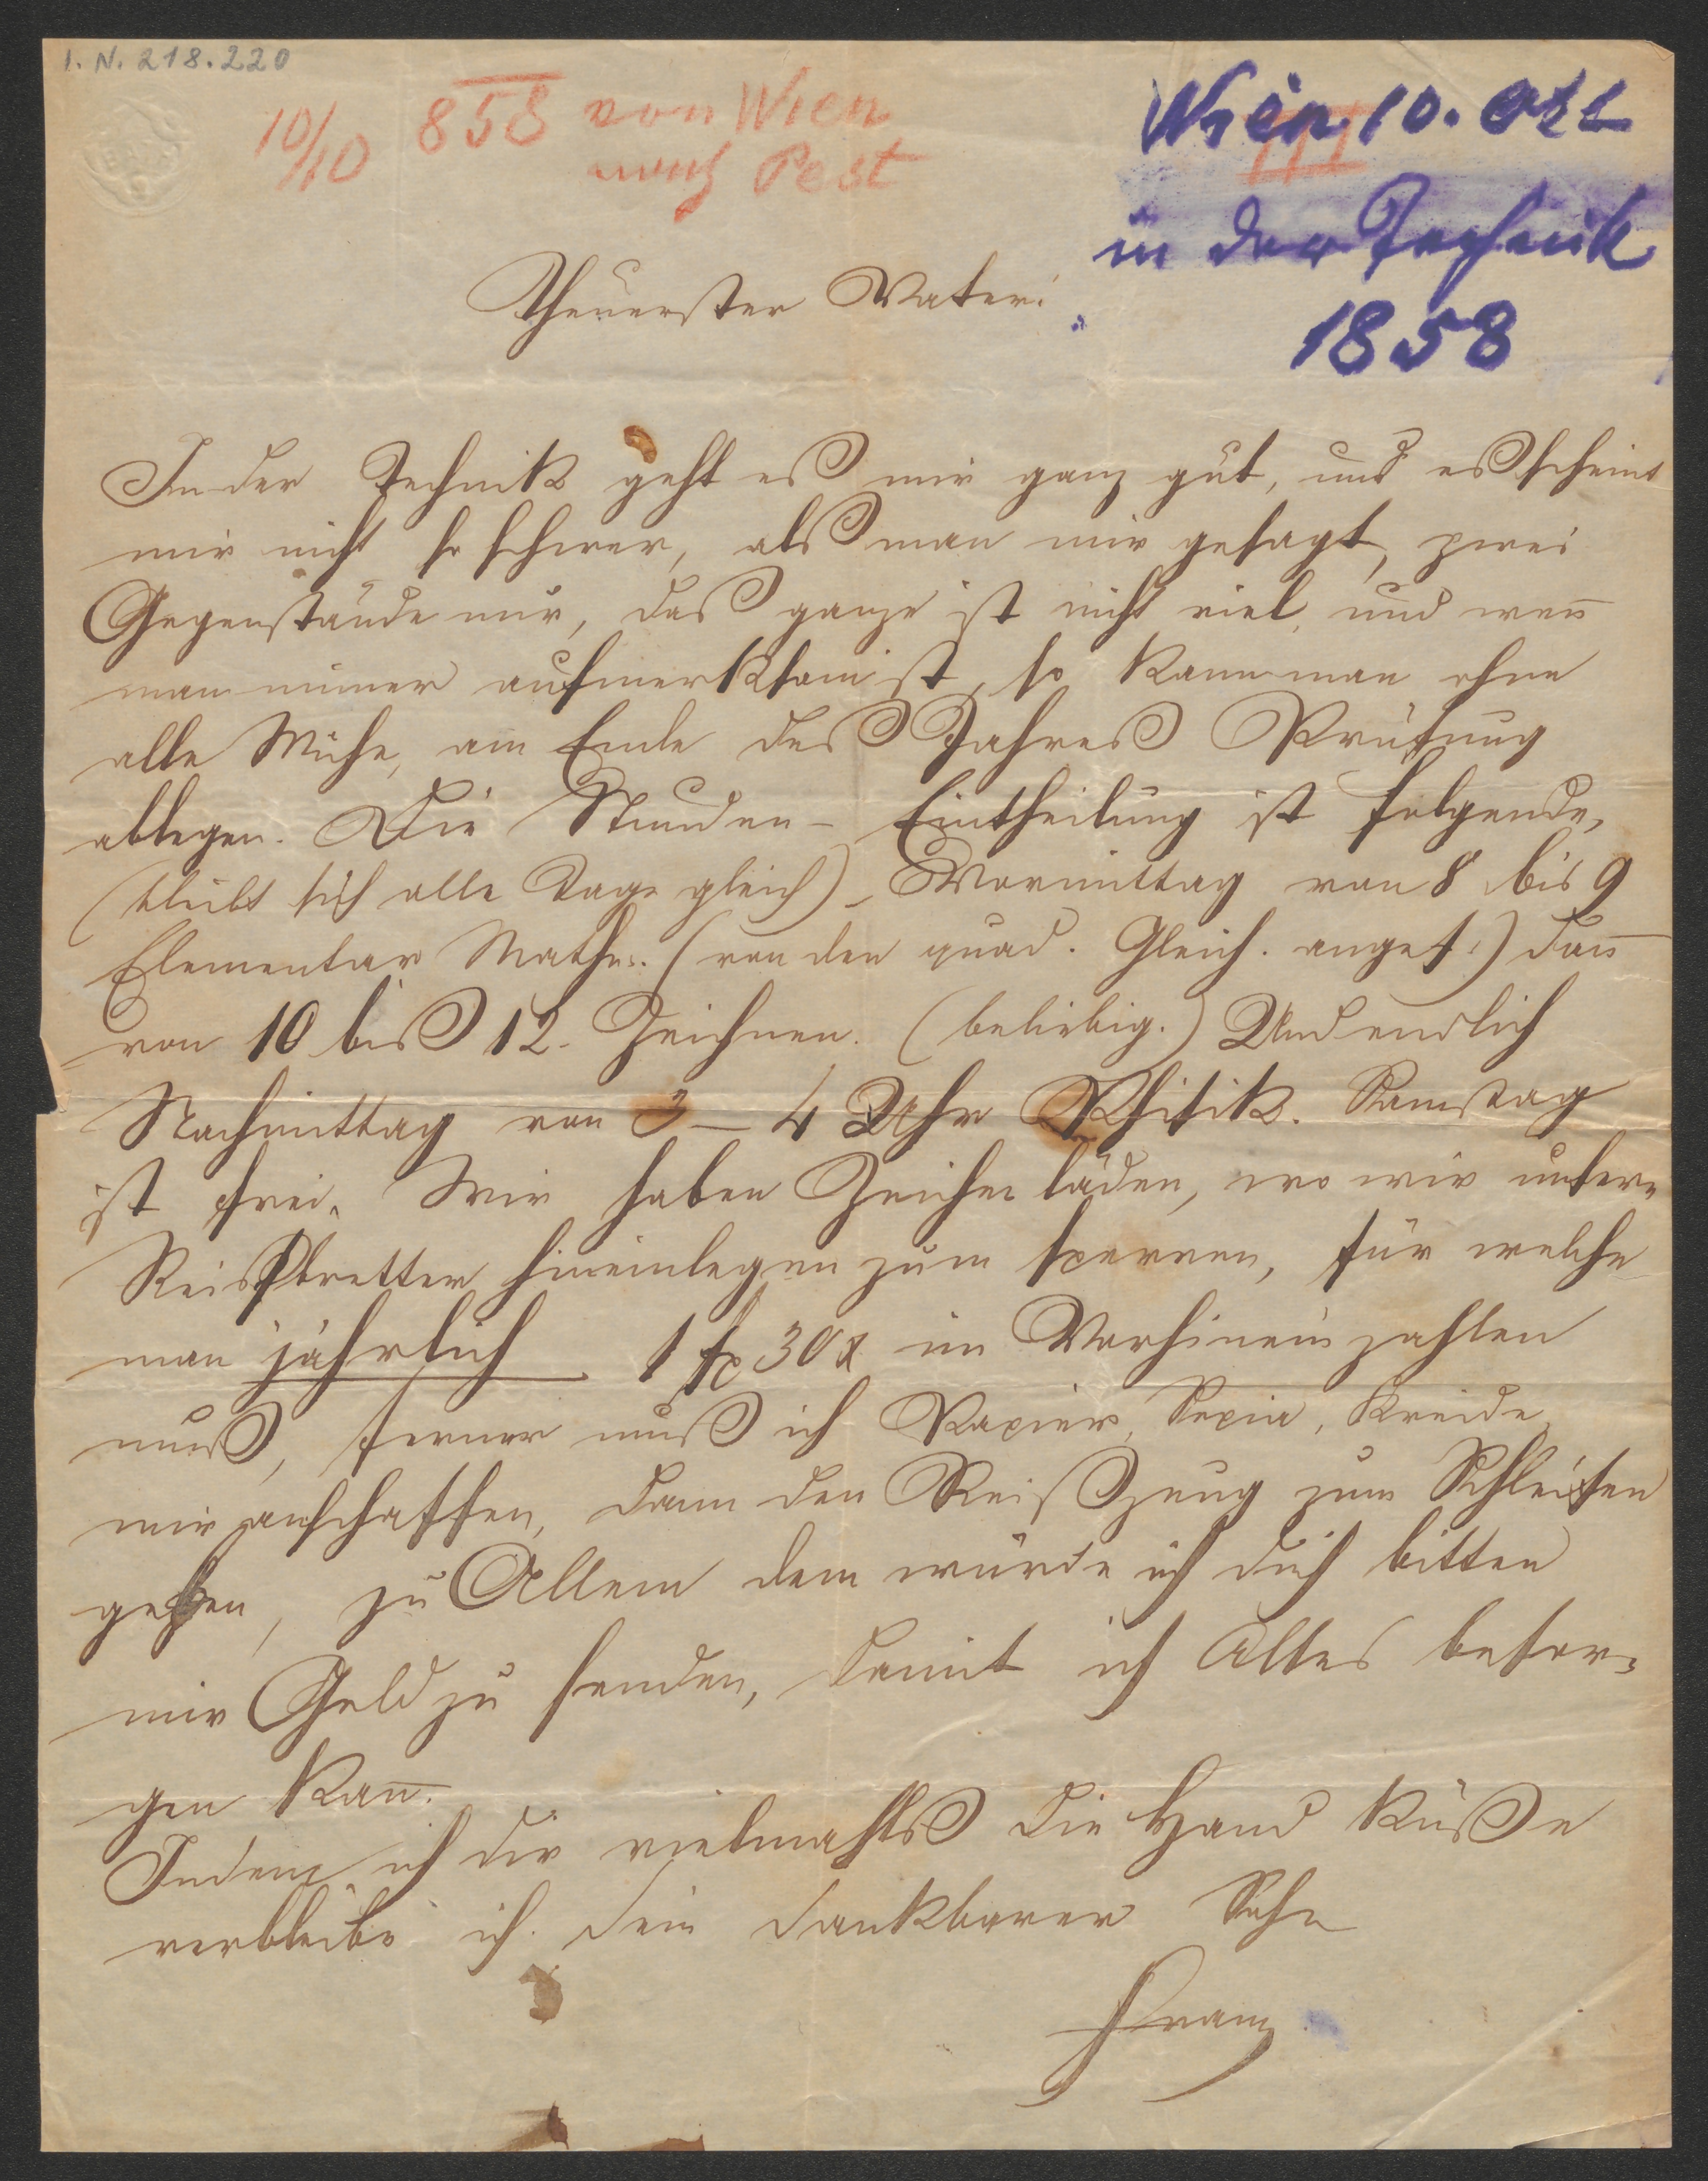 I. N. 218.220
10/10 858 von Wien
nach Pest
III
Wien, 10. Okt
in der Technik
1858
Theuerster Vater!
In der Technik geht es mir ganz gut, und es scheint
mir nicht so schwer, als man mir gesagt, zwei
Gegenstände nur, das ganze ist nicht viel, und wen̅
man immer aufmerksam ist, so kann man ohne
alle Mühe, am Ende des Jahres Prüfung
ablegen. Die Stunden-Eintheilung ist folgende,
(bleibt sich alle Tage gleich) – Vormittag von 8 bis 9
Elementar Mathe. (von den quad. Gleich. angef.) dan̅
von 10 bis 12. Zeichnen. (beliebig.) Und endlich
Nachmittag von 3 – 4 Uhr Phisik. Samstag
ist frei. Wir haben Zeichenläden, wo wir unsere
Reisbretter hineinlegen zum sperren, für welche
man jährlich 1 f 30 x im Vorhinein zahlen
muß, ferner muß ich Papier, Sepia, Kreide,
mir anschaffen, dann den Reißzeug zum Schleifen
geben, zu Allem dem würde ich dich bitten
mir Geld zu senden, damit ich Alles besor=
gen kan̅.
Indem ich dir vielmahls die Hand küße
verbleibe ich. dein dankbarer Sohn
Franz